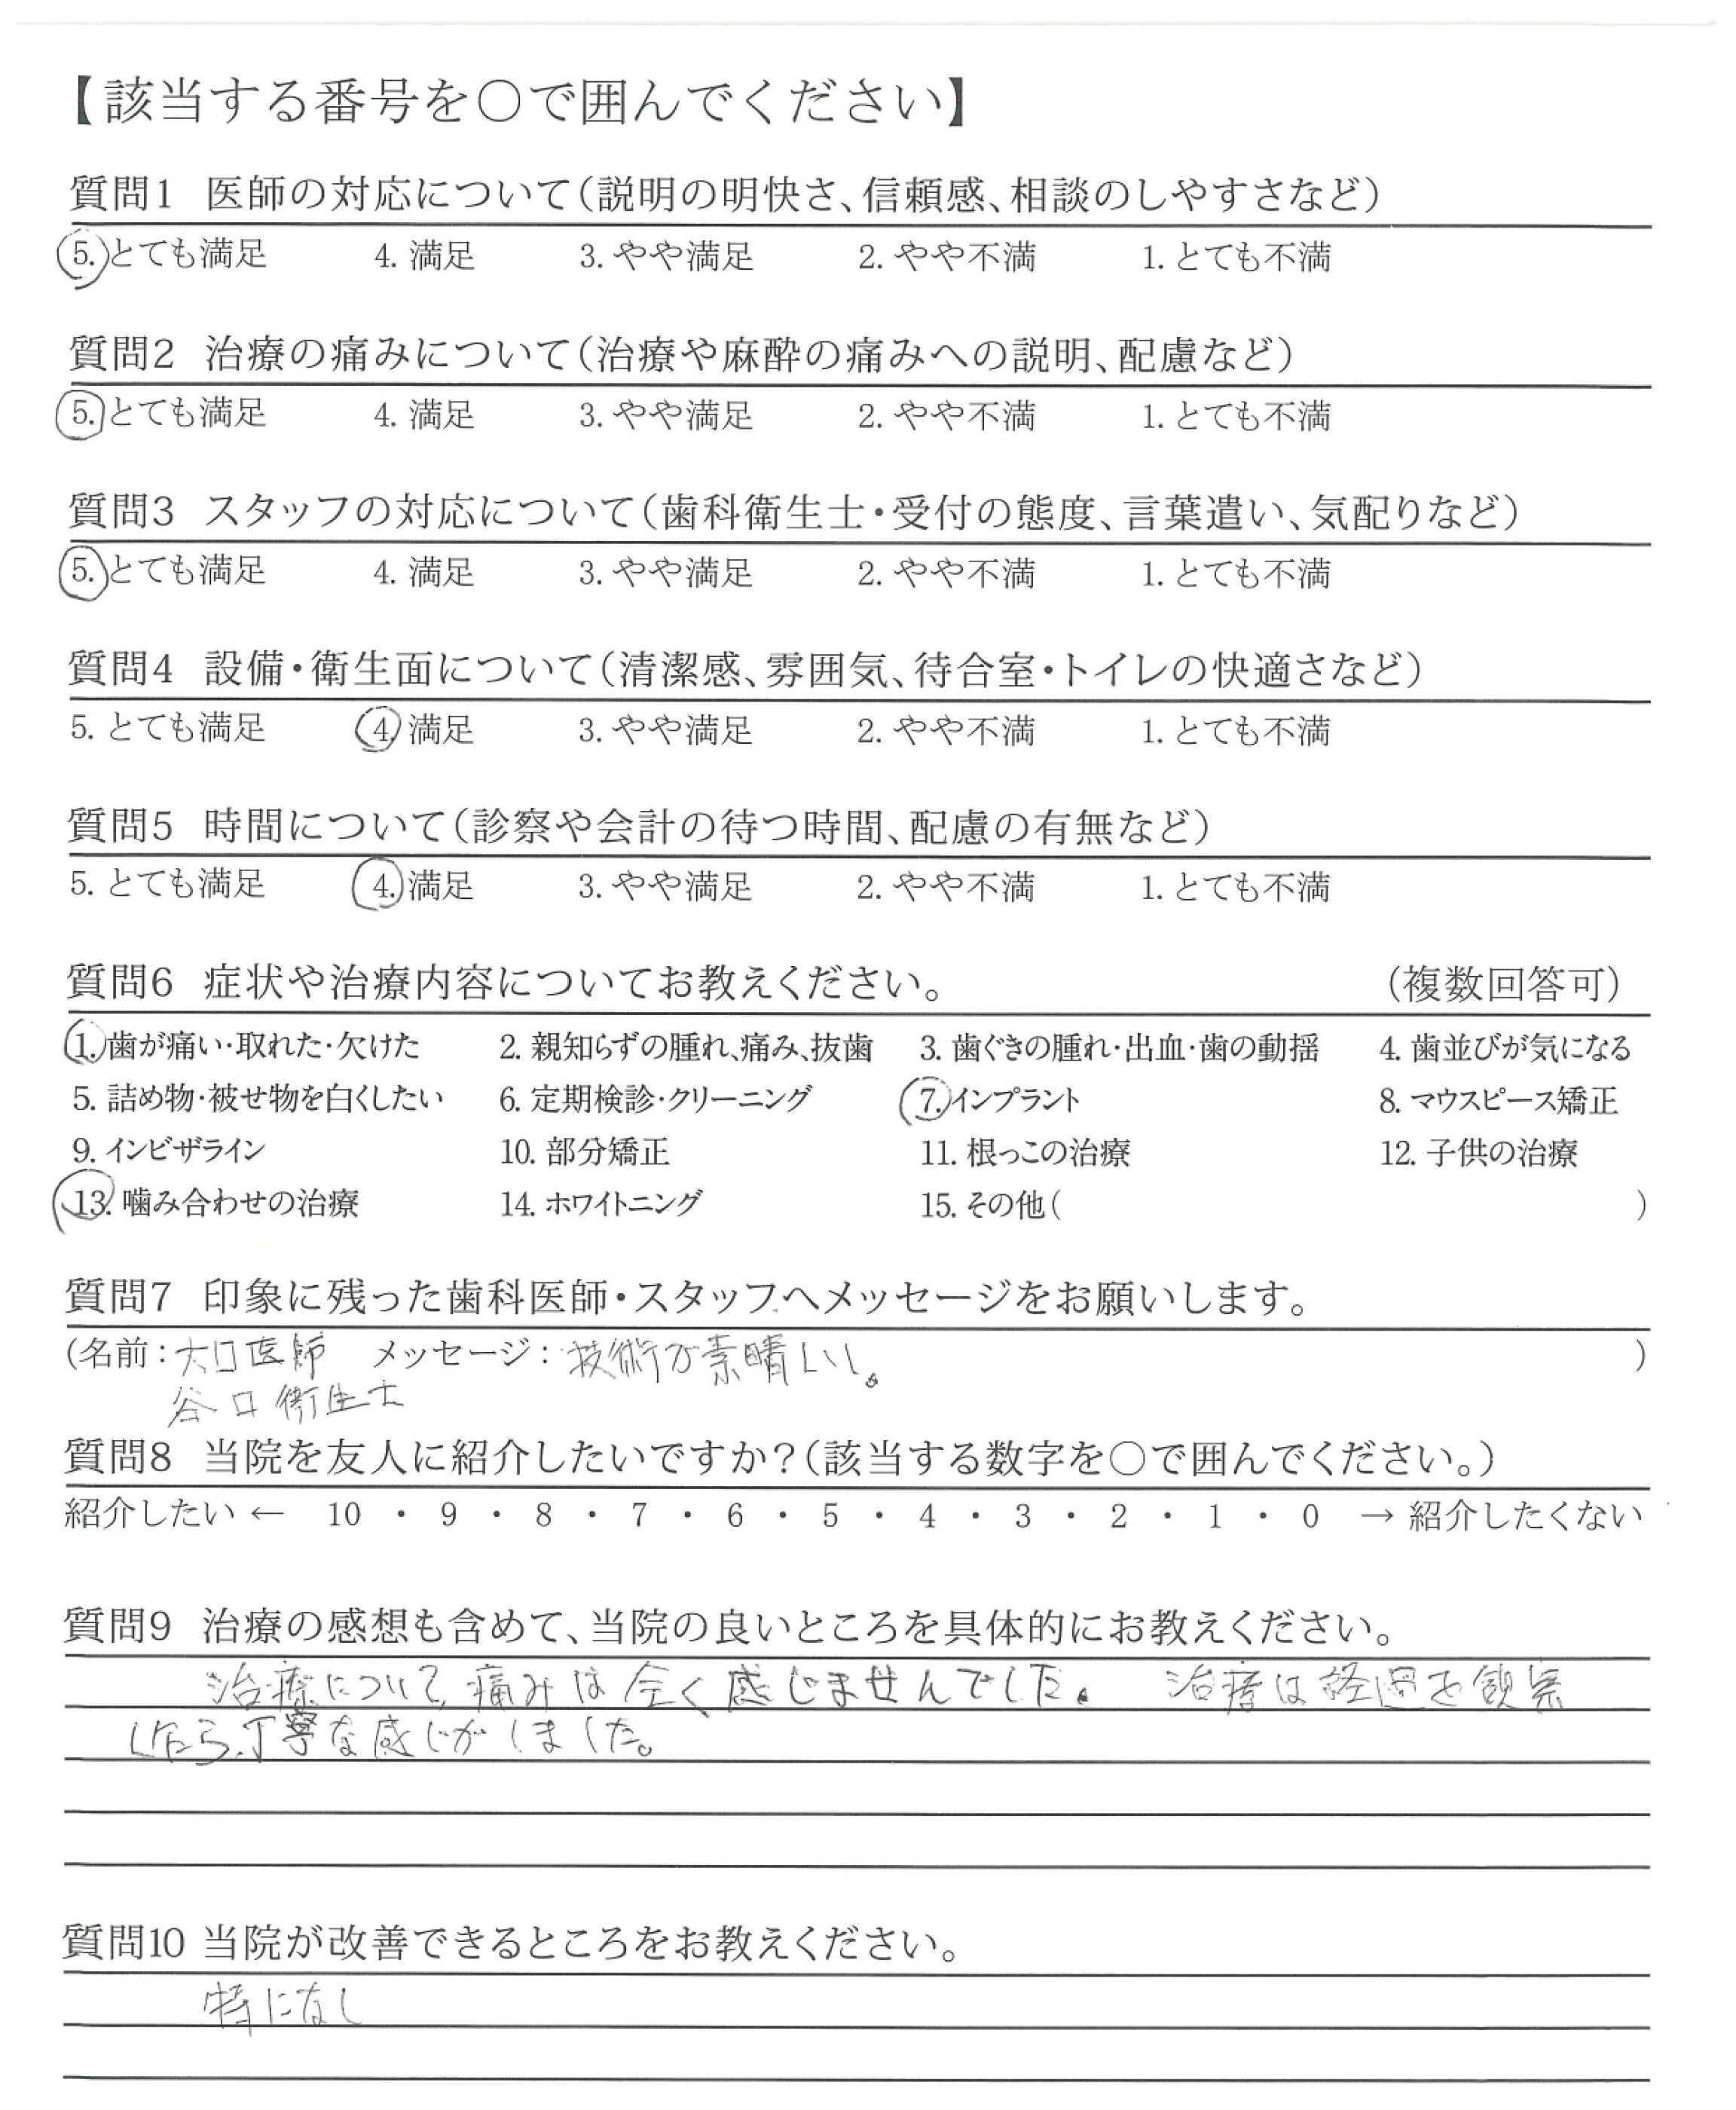 【該当する番号を○で囲んでください】
質問1 医師の対応について(説明の明快さ、信頼感、相談のしやすさなど)
5. とても満足 4. 満足 3. やや満足 2. やや不満 1. とても不満
質問2 治療の痛みについて(治療や麻酔の痛みへの説明、配慮など)
5. とても満足 4. 満足 3. やや満足 2. やや不満 1. とても不満
質問3 スタッフの対応について(歯科衛生士・受付の態度、言葉遣い、気配りなど)
5. とても満足 4. 満足 3. やや満足 2. やや不満 1. とても不満
質問4 設備・衛生面について(清潔感、雰囲気、待合室・トイレの快適さなど)
5. とても満足 4. 満足 3. やや満足 2. やや不満 1. とても不満
質問5 時間について(診察や会計の待つ時間、配慮の有無など)
5. とても満足 4. 満足 3. やや満足 2. やや不満 1. とても不満
質問6 症状や治療内容についてお教えください。 (複数回答可)
1. 歯が痛い・取れた・欠けた 2. 親知らずの腫れ、痛み、抜歯 3. 歯ぐきの腫れ・出血・歯の動揺 4. 歯並びが気になる
5. 詰め物・被せ物を白くしたい 6. 定期検診・クリーニング 7. インプラント 8. マウスピース矯正
9. インビザライン 10. 部分矯正 11. 根っこの治療 12. 子供の治療
13. 噛み合わせの治療 14. ホワイトニング 15. その他( )
質問7 印象に残った歯科医師・スタッフへメッセージをお願いします。
(名前:大口医師 メッセージ:技術が素晴しい。 )
谷口衛生士
質問8 当院を友人に紹介したいですか?(該当する数字を○で囲んでください。)
紹介したい ← 10 ・ 9 ・ 8 ・ 7 ・ 6 ・ 5 ・ 4 ・ 3 ・ 2 ・ 1 ・ 0 → 紹介したくない
質問9 治療の感想も含めて、当院の良いところを具体的にお教えください。
治療について、痛みは全く感じませんでした。 治療は経過を観察
したら、丁寧な感じがしました。
質問10 当院が改善できるところをお教えください。
特になし